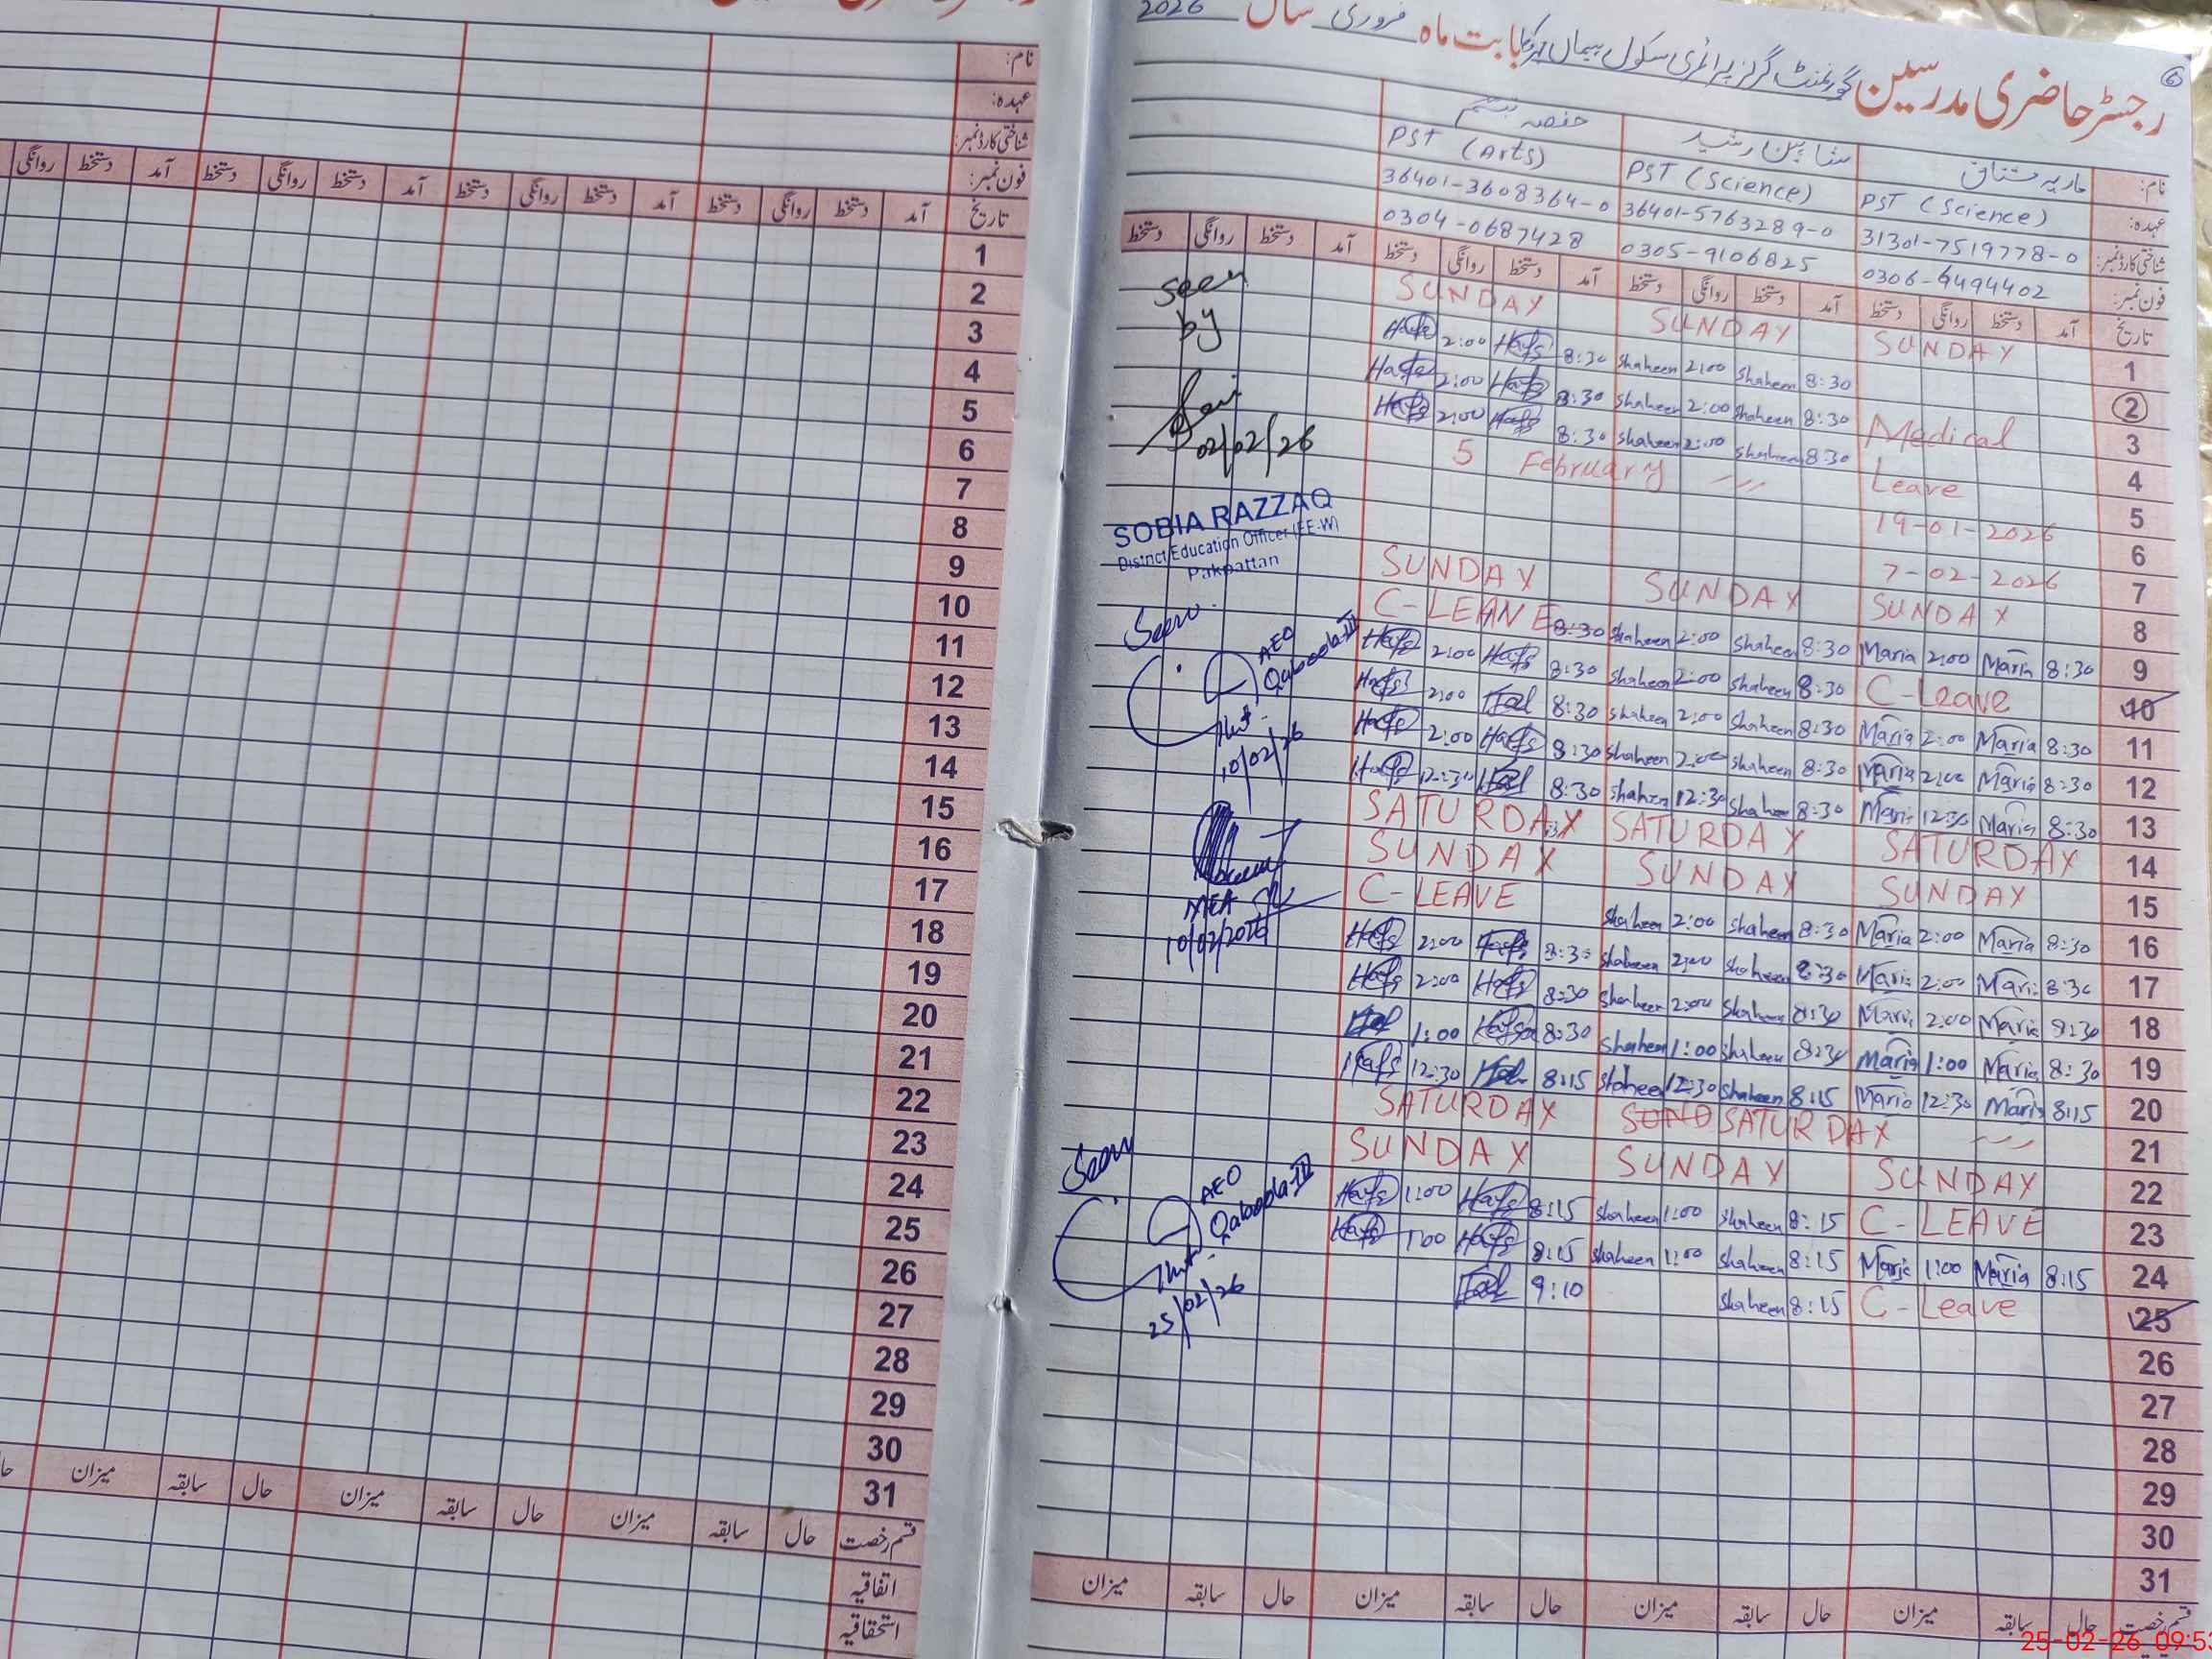 رجسٹر حاضری مدرسین گورنمنٹ گرلز پرائمری سکول بابت ماہ فروری سال 2026
6
نام: ماریہ مشتاق شاہین رشید حفصہ
عہدہ: PST (Science) PST (Science) PST (Arts)
شناختی کارڈ نمبر: 31301-7519778-0 36401-5763289-0 36401-3608364-0
فون نمبر: 0306-9494402 0305-9106825 0304-0687428
تاریخ آمد دستخط روانگی دستخط آمد دستخط روانگی دستخط آمد دستخط روانگی دستخط آمد دستخط روانگی دستخط
1 SUNDAY SUNDAY SUNDAY
2 8:30 Shaheen 2:00 Shaheen 8:30 Hafs 2:00 Hafs
3 Medical 8:30 Shaheen 2:00 Shaheen 8:30 Hafs 2:00 Hafs
4 Leave 8:30 Shaheen 2:00 Shaheen 8:30 Hafs 2:00 Hafs
5 19-01-2026 5 February
6 7-02-2026
7
8 SUNDAY SUNDAY SUNDAY
9 8:30 Maria 2:00 Maria 8:30 Shaheen 2:00 Shaheen 8:30 C-LEAVE
10 C-Leave 8:30 Shaheen 2:00 Shaheen 8:30 Hafs 2:00 Hafs
11 8:30 Maria 2:00 Maria 8:30 Shaheen 2:00 Shaheen 8:30 2:00 Hafs
12 8:30 Maria 2:00 Maria 8:30 Shaheen 2:00 Shaheen 8:30 Hafs 2:00 Hafs
13 8:30 Maria 12:30 Maria 8:30 Shaheen 12:30 Shaheen 8:30 12:30 Hafs
14 SATURDAY SATURDAY SATURDAY
15 SUNDAY SUNDAY SUNDAY
16 8:30 Maria 2:00 Maria 8:30 Shaheen 2:00 Shaheen C-LEAVE
17 8:30 Maria 2:00 Maria 8:30 Shaheen 2:00 Shaheen 8:30 Hafs 2:00 Hafs
18 8:30 Maria 2:00 Maria 8:30 Shaheen 2:00 Shaheen 8:30 Hafs 2:00 Hafs
19 8:30 Maria 1:00 Maria 8:30 Shaheen 1:00 Shaheen 8:30 Hafsa 1:00
20 8:15 Maria 12:30 Maria 8:15 Shaheen 12:30 Shaheen 8:15 12:30 Hafs
21 SATURDAY SATURDAY
22 SUNDAY SUNDAY SUNDAY
23 C-LEAVE 8:15 Shaheen 1:00 Shaheen 8:15 Hafs 1:00 Hafs
24 8:15 Maria 1:00 Maria 8:15 Shaheen 1:00 Shaheen 8:15 Hafs 1:00 Hafs
25 C-Leave 8:15 Shaheen 9:10
26
27
28
29
30
31
قسم رخصت حال سابقہ میزان حال سابقہ میزان حال سابقہ میزان حال سابقہ میزان
seen
by
02/02/26
SOBIA RAZZAQ
District Education Officer (EE-W)
Pakpattan
Seen
AEO
Qaboola-III
10/02/26
MEA
10/02/2026
Seen
AEO
Qaboola-III
25/02/26
نام:
عہدہ:
شناختی کارڈ نمبر:
فون نمبر:
تاریخ آمد دستخط روانگی دستخط آمد دستخط روانگی دستخط آمد دستخط روانگی
1
2
3
4
5
6
7
8
9
10
11
12
13
14
15
16
17
18
19
20
21
22
23
24
25
26
27
28
29
30
31
قسم رخصت حال سابقہ میزان حال سابقہ میزان حال سابقہ میزان
اتفاقیہ
استحقاقیہ
25-02-26 09:53